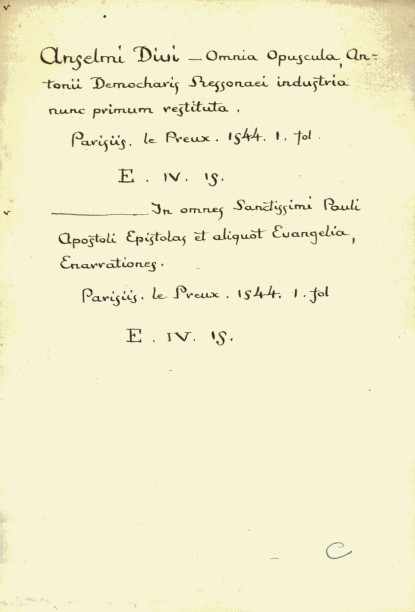 Anselmi Divi — Omnia Opuscula, An-
tonii Democharis Ressonaei industria
nunc primum restituta.
Parisiis. le Preux. 1544. 1. fol.
E. IV. 15.
————— In omnes Sanctissimi Pauli
Apostoli Epistolas et aliquot Evangelia,
Enarrationes.
Parisiis. le Preux. 1544. 1. fol
E. IV. 15.
C